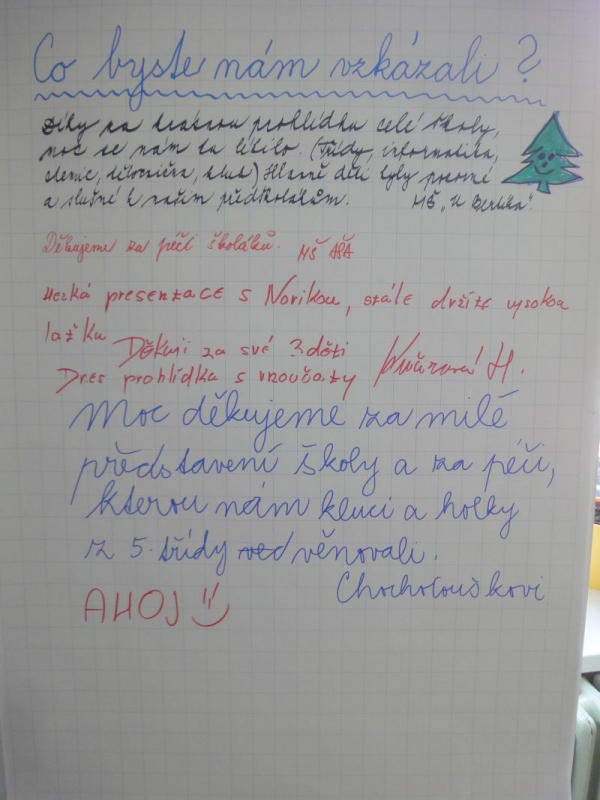 Co byste nám vzkázali?
Díky za krásnou prohlídku celé školy,
moc se nám tu líbilo. (Třídy, informatika,
dílnička, klub) Hlavně děti byly pozorné
a slušné k našim předškolákům. MŠ „U Bertíka“.
Děkujeme za péči školáků. MŠ AŠA
Hezká presentace s Norikou, stále držíte vysokou
laťku
Děkuji za své 3 děti
Dnes prohlídka s vnoučaty H.
Moc děkujeme za milé
představení školy a za péči,
kterou nám kluci a holky
z 5. třídy věnovali.
Chocholouškovi
AHOJ